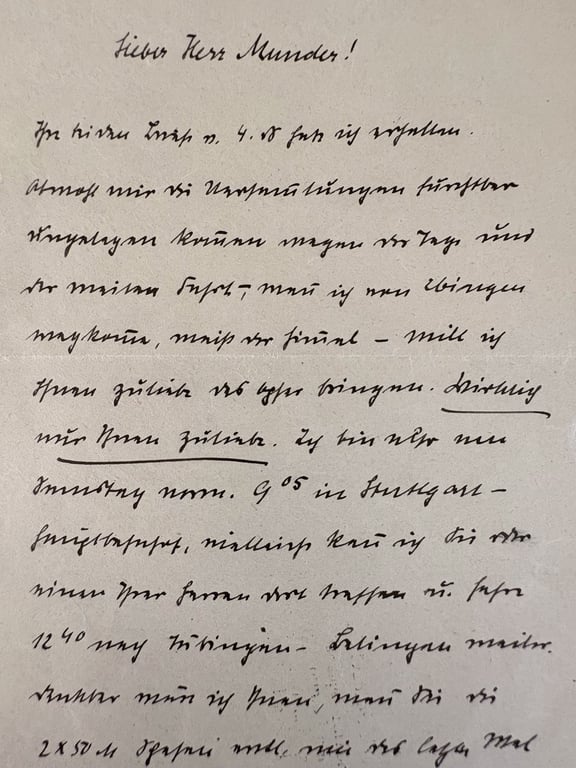 Lieber Herr Munder!
Ihre beiden Briefe v. 4. ds habe ich erhalten.
Obwohl mir die Versam̄lungen furchtbar
ungelegen kom̄en wegen der Tage und
der weiten Fahrt –, wan̄ ich von Ebingen
wegkom̄e, weiß der Him̄el – will ich
Ihnen zuliebe das Opfer bringen. Wirklich
nur Ihnen zuliebe. Ich bin also
Samstag vorm. 9 05 in Stuttgart –
Hauptbahnhof, vielleicht kan̄ ich Sie oder
einen Ihrer Herren dort treffen u. fahre
12 40 nach Tübingen – Balingen weiter.
Dankbar wäre ich Ihnen, wen̄ Sie die
2 x 50 M Spesen evtl. wie das letzte Mal